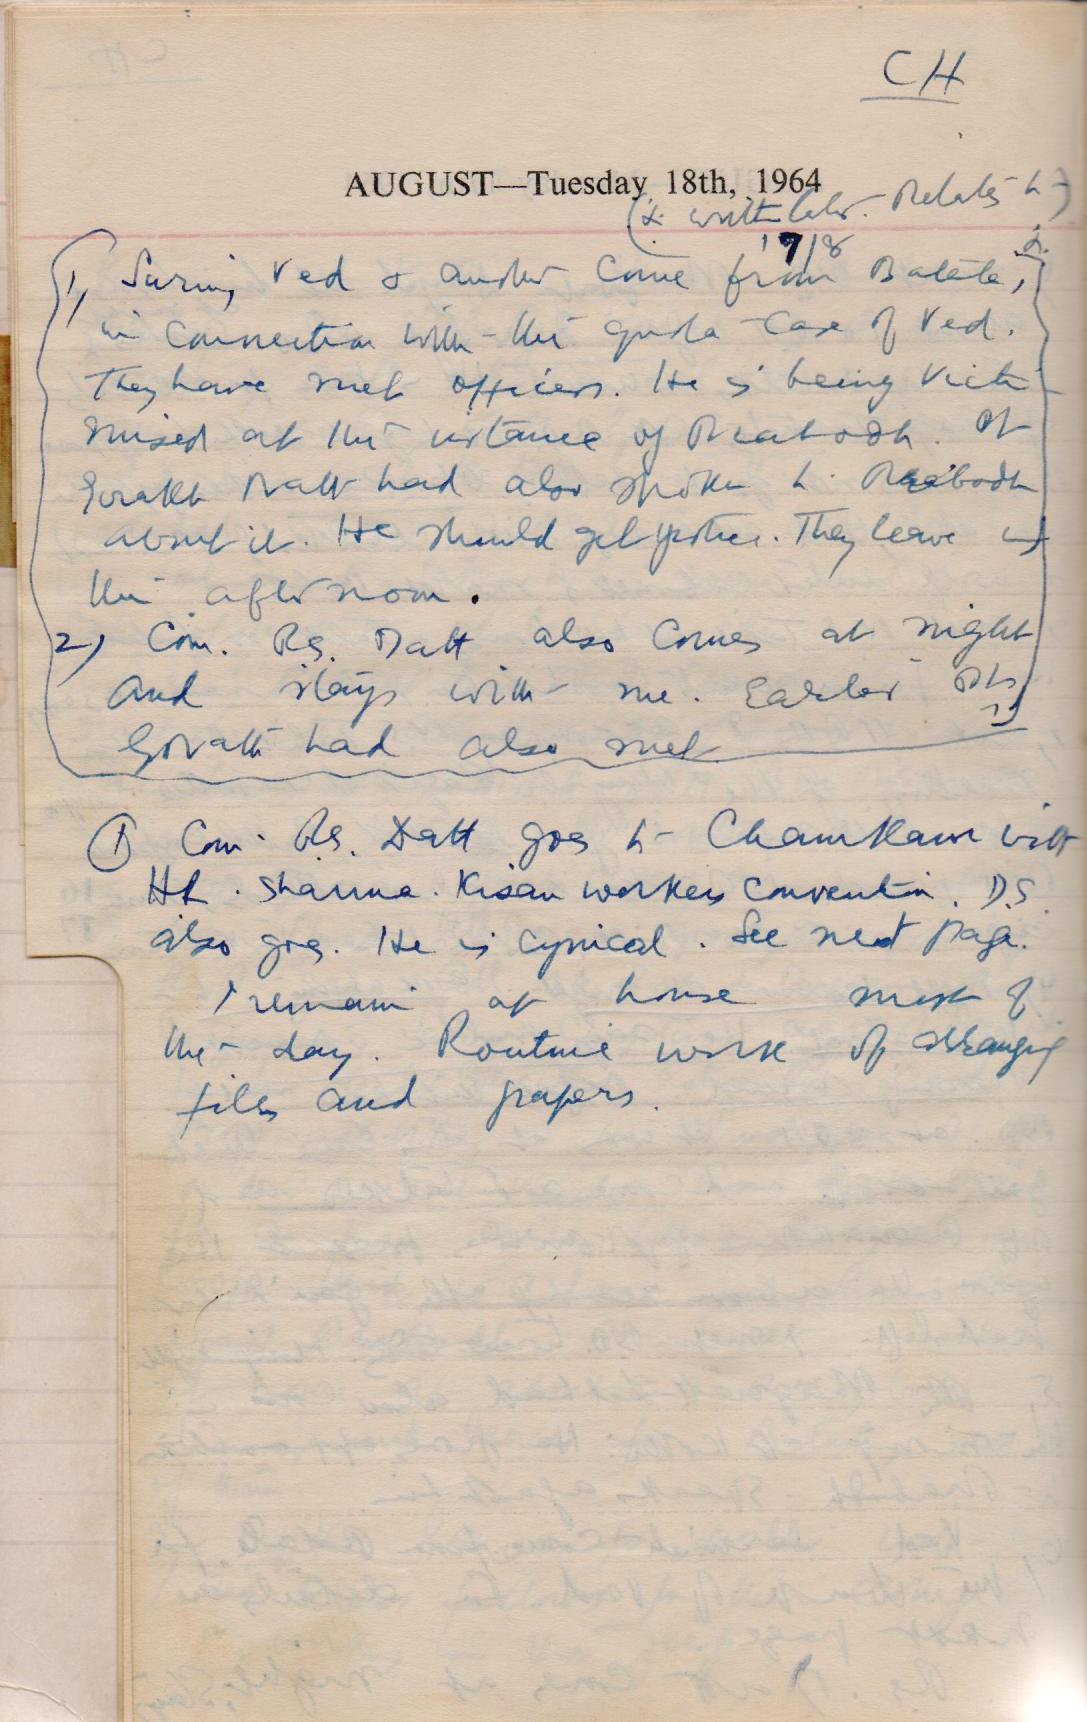 CH
AUGUST—Tuesday 18th, 1964
(x. written later. Relates to
17/8
1) Surinj Ved & another come from Batala,
in connection with the quota case of Ved.
They have met officers. He is being victi-
mised at the instance of Prabodh. Pt
Gorakh Datt had also spoken to Prabodh
about it. He should get justice. They leave in
the afternoon.
2) Com. Rs. Datt also comes at night
and stays with me. Earlier Pt
Gorakh had also met
① Com. Rs. Datt goes to Chamkaur with
HR. Sharma. Kisan workers convention. D.S.
also goes. He is cynical. See next page.
I remain at house most of
the day. Routine work of arranging
files and papers.